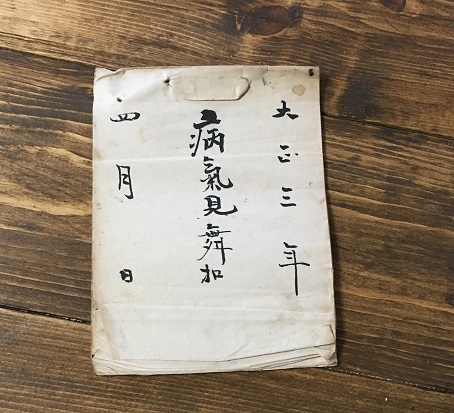 大正三年
病氣見舞扣
四月 日